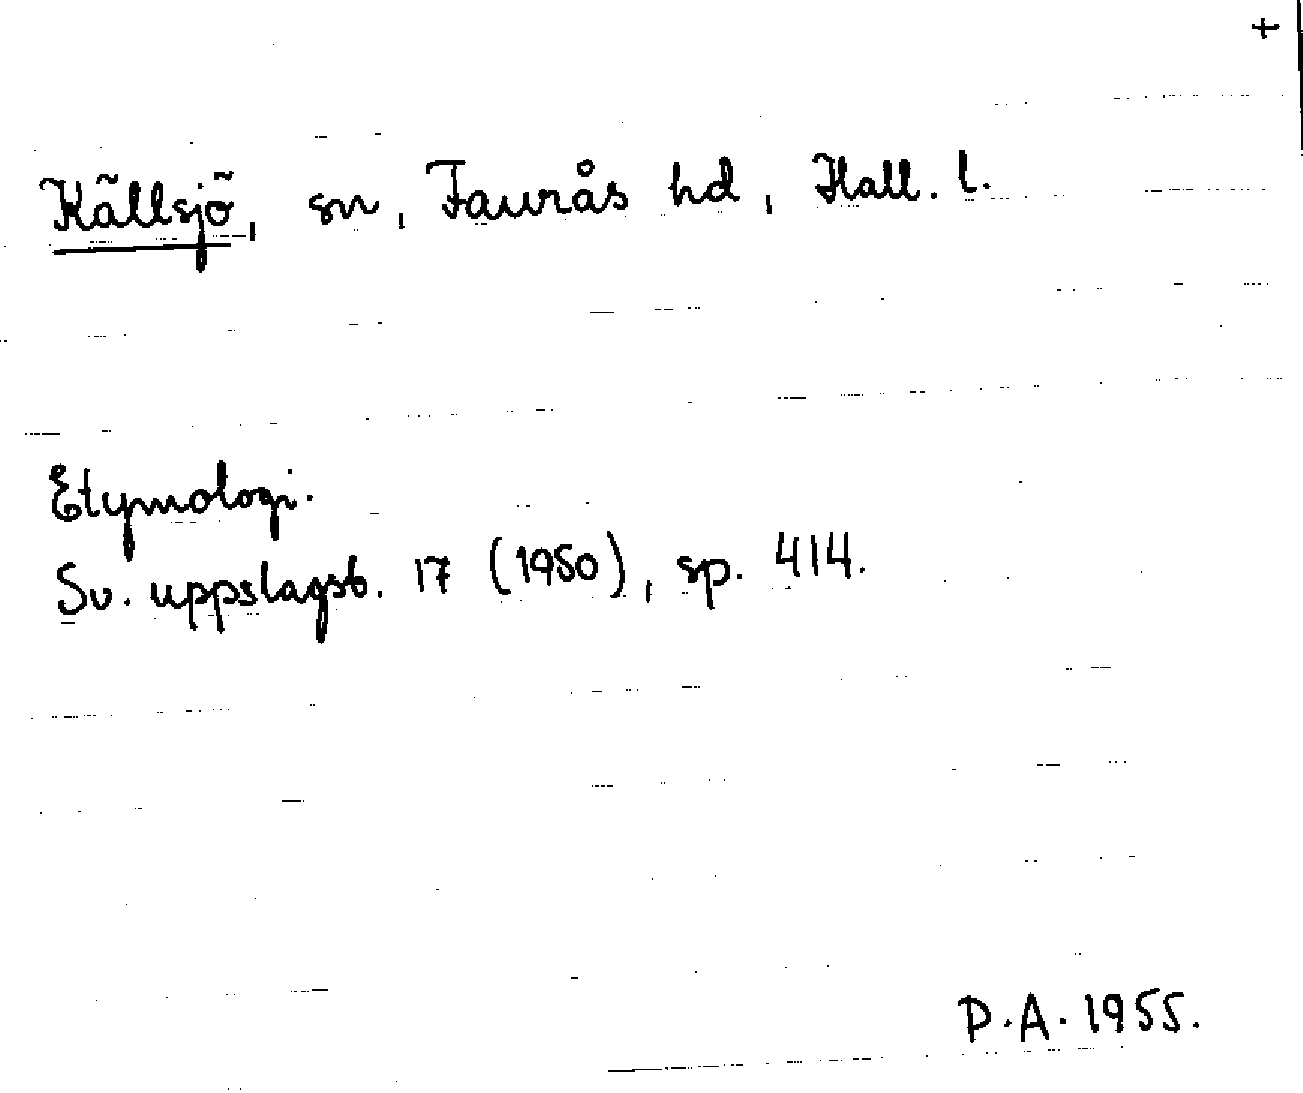 +
Källsjö, sn, Faurås hd, Hall. l.
Etymologi.
Sv. uppslagsb. 17 (1950), sp. 414.
P.A. 1955.